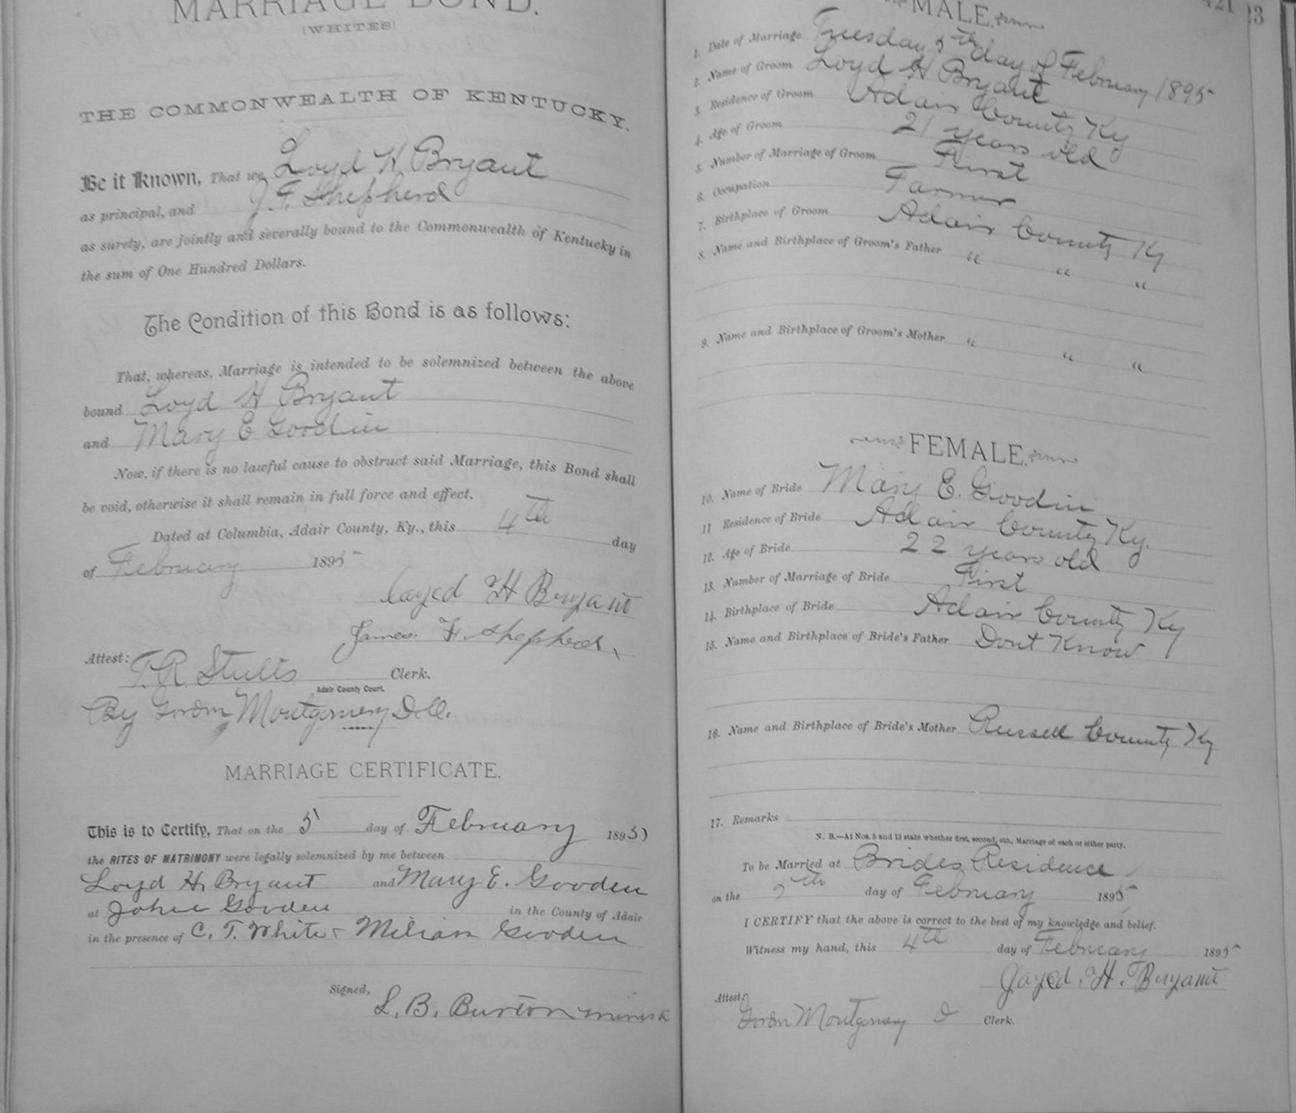 MARRIAGE BOND.
(WHITES)
THE COMMONWEALTH OF KENTUCKY.
Be it Known, That we Loyd H Bryant
as principal, and J. F. Shepherd
as surety, are jointly and severally bound to the Commonwealth of Kentucky in
the sum of One Hundred Dollars.
The Condition of this Bond is as follows:
That, whereas, Marriage is intended to be solemnized between the above
bound Loyd H Bryant
and Mary E Goodin
Now, if there is no lawful cause to obstruct said Marriage, this Bond shall
be void, otherwise it shall remain in full force and effect.
Dated at Columbia, Adair County, Ky., this 4th day
of February 1895
Loyed H Bryant
James F. Shepherd
Attest: T. R. Stults Clerk.
Adair County Court.
By Gordon Montgomery D.C.
MARRIAGE CERTIFICATE.
This is to Certify, That on the 5 day of February 1895
the RITES OF MATRIMONY were legally solemnized by me between
Loyd H. Bryant and Mary E. Gooden
at John Gooden in the County of Adair
in the presence of C. T. White & Milian Gooden
Signed,
L. B. Burton
MALE.
1. Date of Marriage Tuesday 5th day of February 1895
2. Name of Groom Loyd H Bryant
3. Residence of Groom Adair County Ky
4. Age of Groom 21 years old
5. Number of Marriage of Groom First
6. Occupation Farmer
7. Birthplace of Groom Adair County Ky
8. Name and Birthplace of Groom's Father " " "
9. Name and Birthplace of Groom's Mother " " "
FEMALE.
10. Name of Bride Mary E. Goodin
11 Residence of Bride Adair County Ky.
12. Age of Bride 22 years old
13. Number of Marriage of Bride First
14. Birthplace of Bride Adair County Ky
15. Name and Birthplace of Bride's Father Dont Know
16. Name and Birthplace of Bride's Mother Russell County Ky
17. Remarks
N. B.—At Nos. 5 and 13 state whether first, second, etc., Marriage of each or either party.
To be Married at Brides Residence
on the 5th day of February 1895
I CERTIFY that the above is correct to the best of my knowledge and belief.
Witness my hand, this 4th day of February 1895
Loyed. H. Bryant
Attest:
Gordon Montgomery D Clerk.